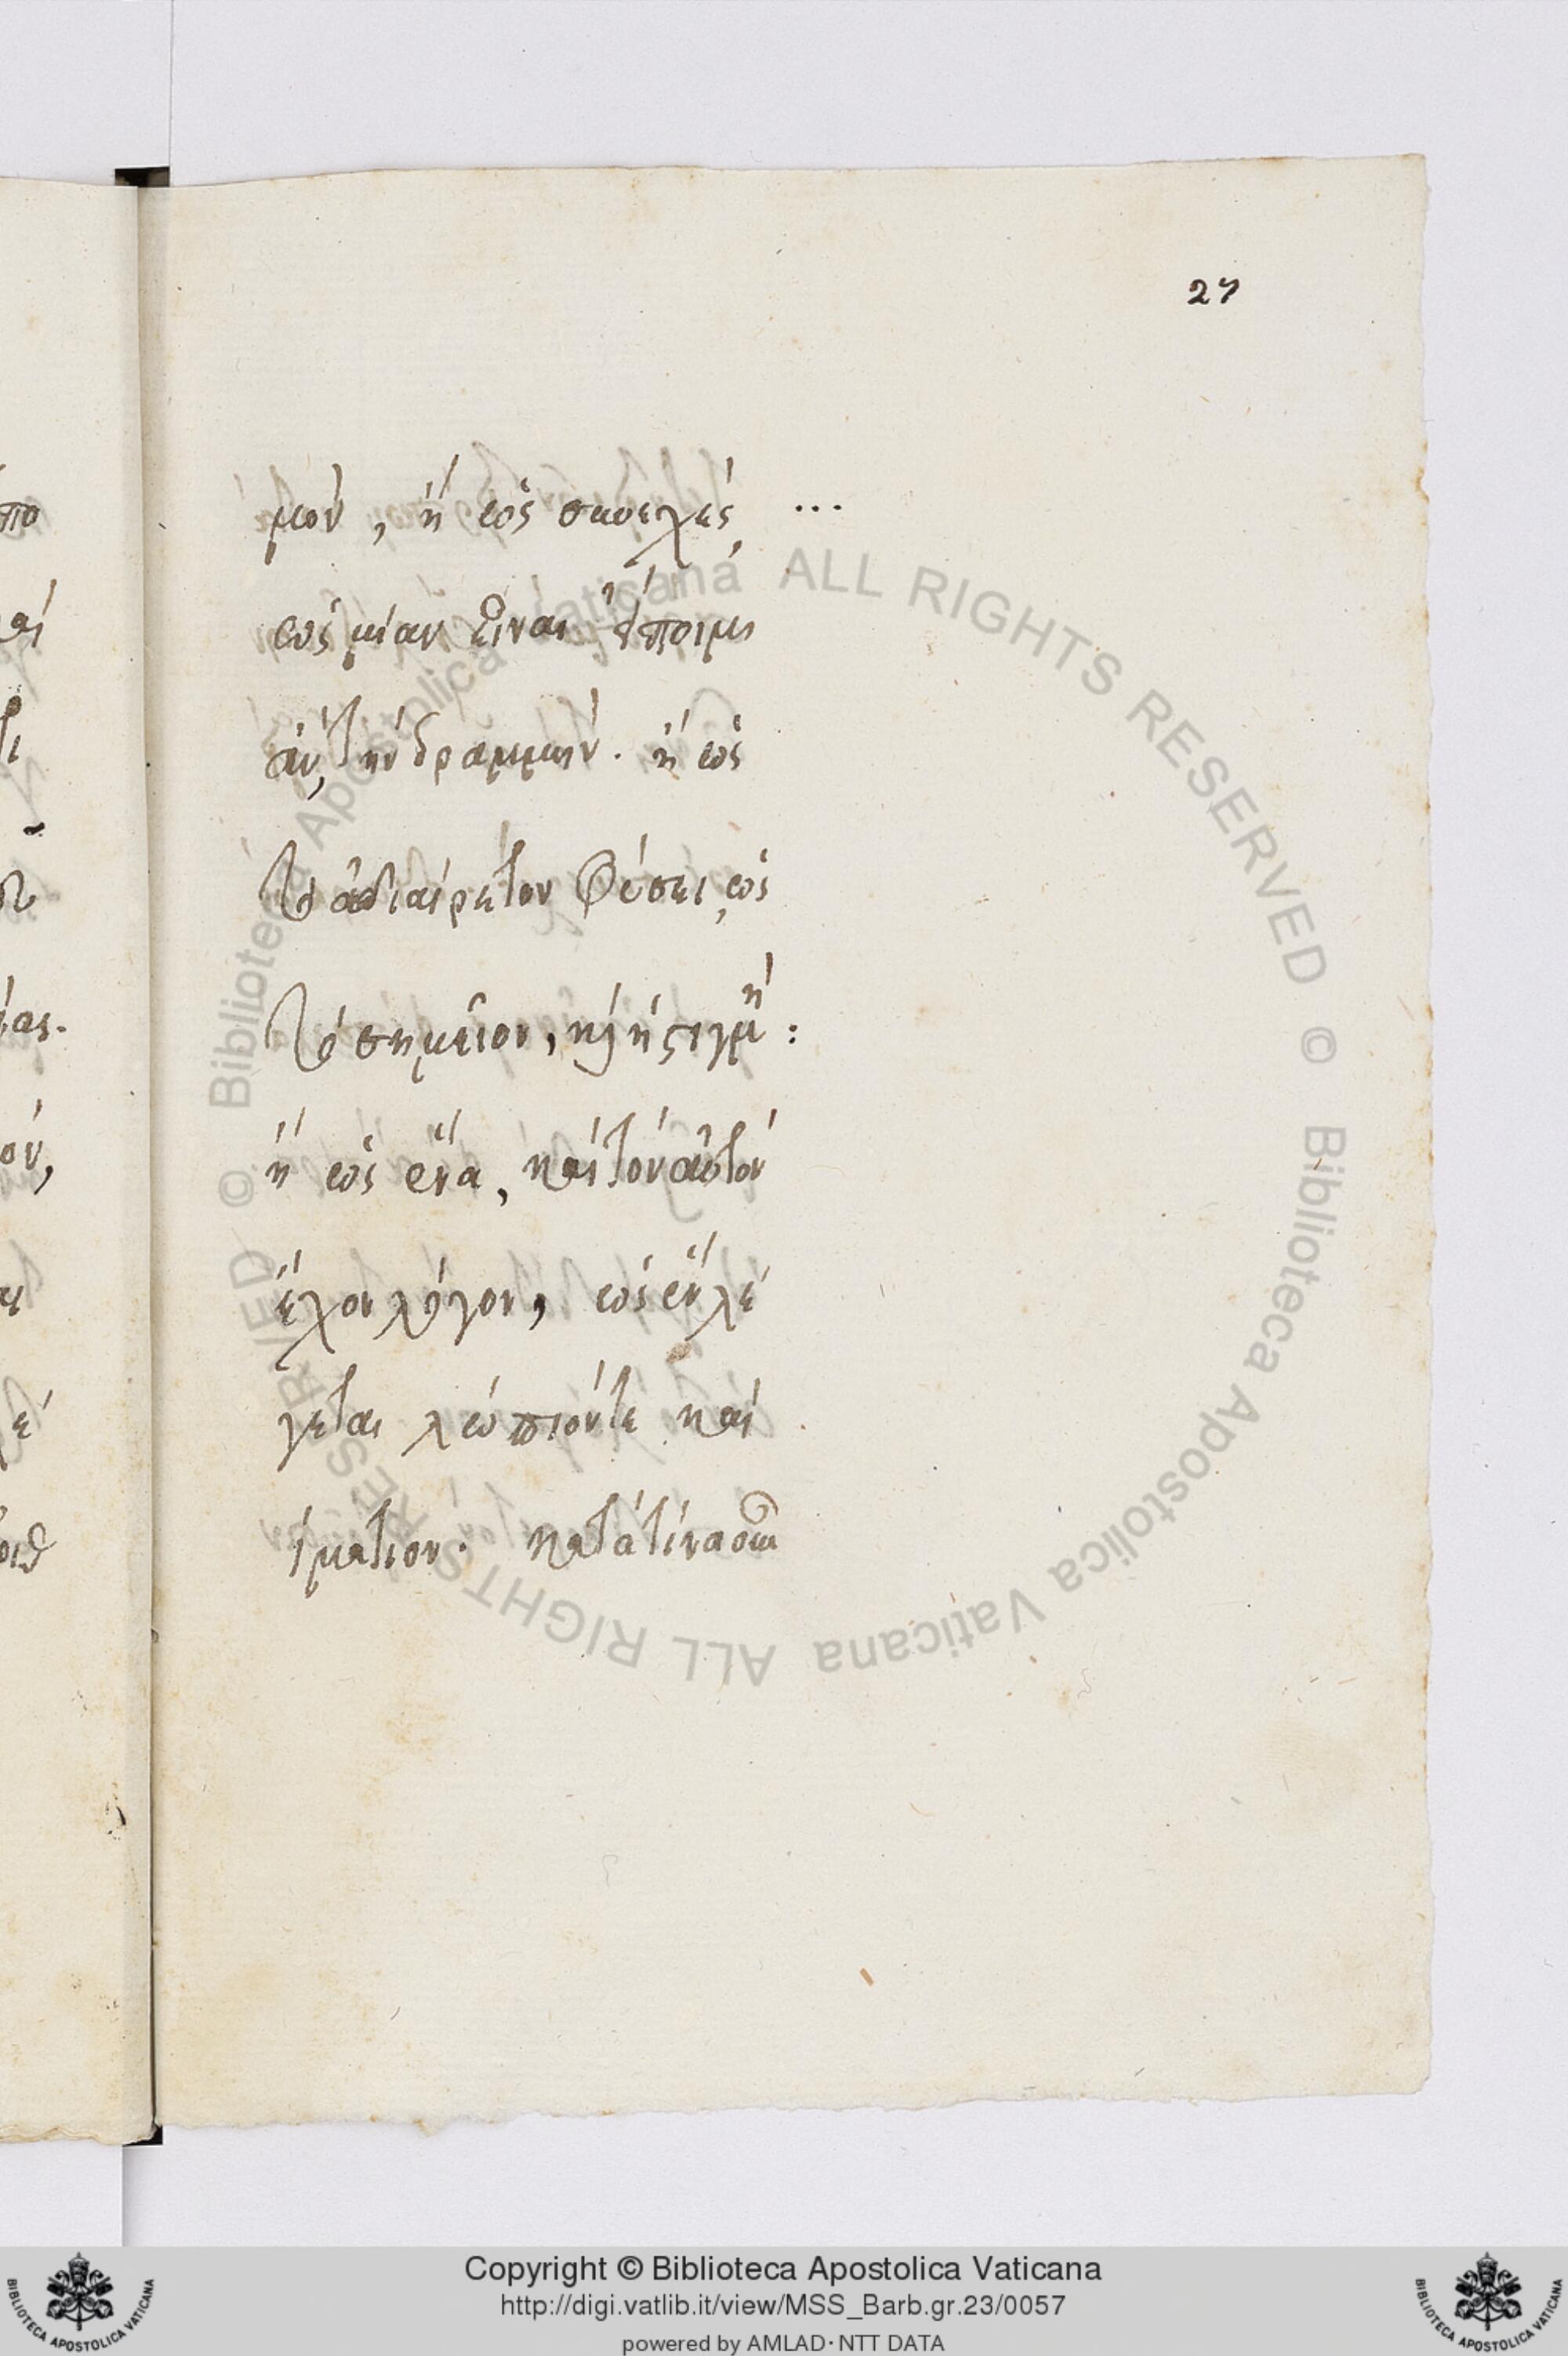 27
πο
μον, ἢ ὡς συνεχὲς, ...
αί
ὡς μίαν εἶναι εἴποιμι
τι
ἂν, τὴν γραμμὴν. ἢ ὡς
τὸ ἀδιαίρετον φύσει, ὡς
ίας.
τὸ σημεῖον, κỳ ἡ στιγμή:
όν,
ἢ ὡς ἕνα, καὶ τὸν αὐτὸν
ἔχον λόγον, ὡς ἓν λέ
έ
γεται λώπιόν τε καὶ
ἱμάτιον. κατὰ τίνα οὖν
Copyright © Biblioteca Apostolica Vaticana
http://digi.vatlib.it/view/MSS_Barb.gr.23/0057
powered by AMLAD·NTT DATA
BIBLIOTECA APOSTOLICA VATICANA
BIBLIOTECA APOSTOLICA VATICANA
© Biblioteca Apostolica Vaticana ALL RIGHTS RESERVED © Biblioteca Apostolica Vaticana ALL RIGHTS RESERVED